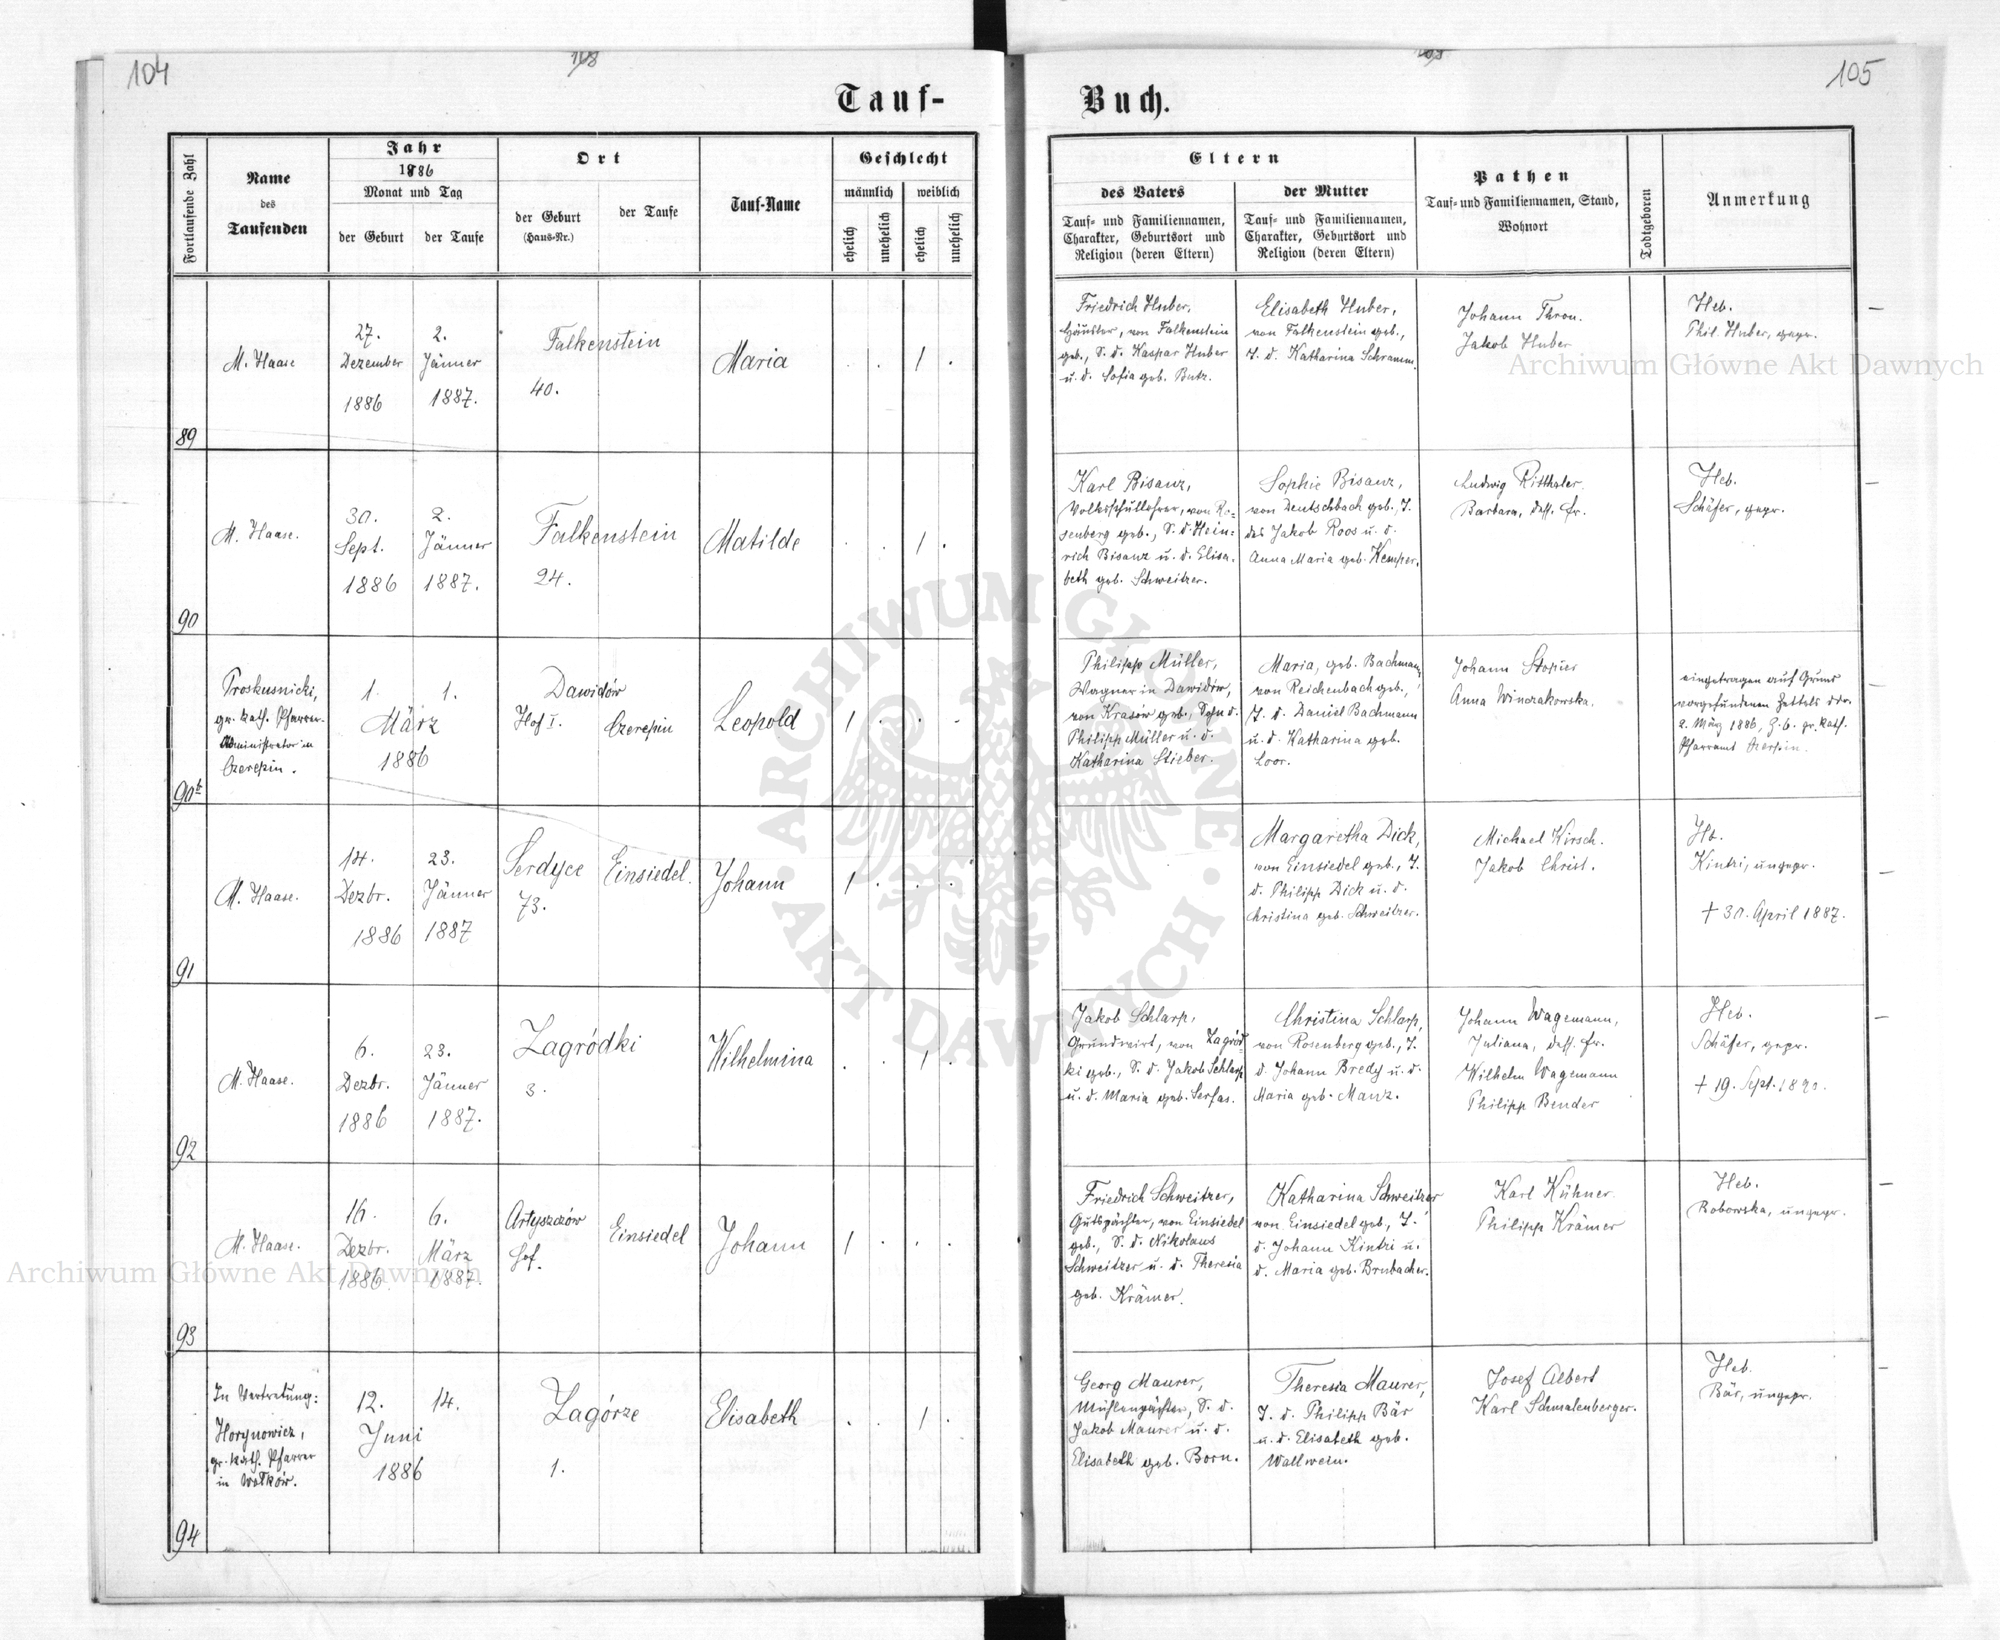 104
108
Tauf-
Fortlaufende Zahl
Name
des
Taufenden
Jahr
1886
Monat und Tag
der Geburt
der Taufe
Ort
der Geburt
(Haus-Nr.)
der Taufe
Tauf-Name
Geschlecht
männlich
weiblich
ehelich
unehelich
ehelich
unehelich
89
M. Haase
27.
Dezember
1886
2.
Jänner
1887.
Falkenstein
40.
Maria
1
90
M. Haase.
30.
Sept.
1886
2.
Jänner
1887.
Falkenstein
24.
Matilde
1
90b
Proskusnicki,
gr. kath. Pfarrer-
Administrator in
Czerepin.
1. 1.
März
1886
Dawidów
Hof I.
Czerepin
Leopold
1
91
M. Haase.
14.
Dezbr.
1886
23.
Jänner
1887
Serdyce
73.
Einsiedel.
Johann
1
92
M. Haase.
6.
Dezbr.
1886
23.
Jänner
1887.
Zagródki
3.
Wilhelmina
1
93
M. Haase.
16.
Dezbr.
1886.
6.
März
1887.
Artyszczów
Hof.
Einsiedel
Johann
1
94
In Vertretung:
Horynowicz,
gr. kath. Pfarrer
in Wołków.
12. 14.
Juni
1886
Zagórze
1.
Elisabeth
1
105
Buch.
Eltern
des Vaters
Tauf- und Familiennamen,
Charakter, Geburtsort und
Religion (deren Eltern)
der Mutter
Tauf- und Familiennamen,
Charakter, Geburtsort und
Religion (deren Eltern)
Pathen
Tauf- und Familiennamen, Stand,
Wohnort
Todtgeboren
Anmerkung
Friedrich Huber,
Häusler, von Falkenstein
geb., S. d. Kaspar Huber
u. d. Sofia geb. Butz.
Elisabeth Huber,
von Falkenstein geb.,
T. d. Katharina Schramm.
Johann Thron.
Jakob Huber
Heb.
Phil. Huber, gepr.
Karl Bisanz,
Volksschullehrer, von Ro-
senberg geb., S. d. Hein-
rich Bisanz u. d. Elisa-
beth geb. Schweitzer.
Sophie Bisanz,
von Deutschbach geb., T.
des Jakob Roos u. d.
Anna Maria geb. Kemper.
Ludwig Ritthaler.
Barbara, dess. Fr.
Heb.
Schäfer, gepr.
Philipp Müller,
Wagner in Dawidów,
von Krasów geb., Sohn d.
Philipp Müller u. d.
Katharina Stieber.
Maria, geb. Bachmann,
von Reichenbach geb.,
T. d. Daniel Bachmann
u. d. Katharina geb.
Loor.
Johann
Anna Winczakowska.
eingetragen auf Grund
vorgefundenen Zettels ddo.
2. März 1886, Z. 6. gr. kath.
Pfarramt Czerepin.
Margaretha Dick,
von Einsiedel geb., T.
d. Philipp Dick u. d.
Christina geb. Schweitzer.
Michael Kirsch.
Jakob Christ.
Hb.
Kintzi, ungepr.
† 30. April 1887.
Jakob Schlarp,
Grundwirt, von Zagród-
ki geb., S. d. Jakob Schlarp
u. d. Maria geb. Serfas.
Christina Schlarp,
von Rosenberg geb., T.
d. Johann Bredy u. d.
Maria geb. Manz.
Johann Wagemann,
Juliana, dess. Fr.
Wilhelm Wagemann
Philipp Bender
Heb.
Schäfer, gepr.
† 19. Sept. 1890.
Friedrich Schweitzer,
Gutspächter, von Einsiedel
geb., S. d. Nikolaus
Schweitzer u. d. Theresia
geb. Krämer.
Katharina Schweitzer
von Einsiedel geb., T.
d. Johann Kintzi u.
d. Maria geb. Brubacher.
Karl Kühner
Philipp Krämer
Heb.
Robowska, ungepr.
Georg Maurer,
Mühlenpächter, S. d.
Jakob Maurer u. d.
Elisabeth geb. Born.
Theresia Maurer,
T. d. Philipp Bär
u. d. Elisabeth geb.
Wallwein.
Josef Albert
Karl Schmalenberger.
Heb.
Bär, ungepr.
Archiwum Główne Akt Dawnych
ARCHIWUM GŁÓWNE
AKT DAWNYCH
Archiwum Główne Akt Dawnych